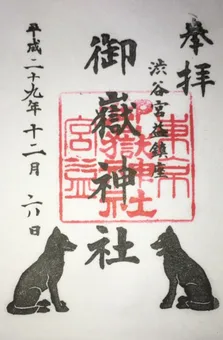 奉拝
渋谷宮益鎮座
御嶽神社
平成二十九年十二月六日
東京
御嶽神社
宮益